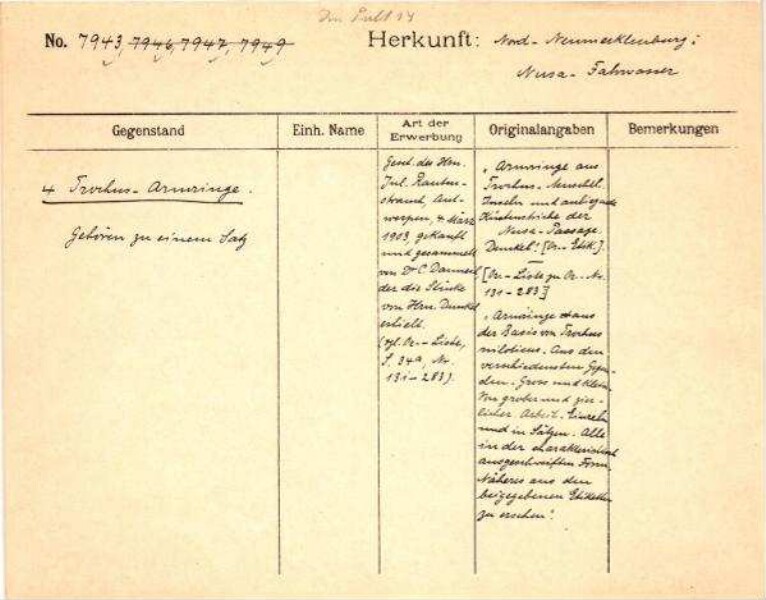 Im Pult 14
No. 7943, 7946, 7947, 7949 Herkunft: Nord-Neumecklenburg;
Nusa-Fahrwasser
Gegenstand
Einh. Name
Art der
Erwerbung
Originalangaben
Bemerkungen
4 Trochus-Armringe.
Gehören zu einem Satz
Gesch. des Hrn.
Jul. Rauten-
strauch, Ant-
werpen, 4. März
1903, gekauft
und gesammelt
von Dr C. Danneil
der die Stücke
von Hrn. Dunkel
erhielt.
(vgl. Or.-Liste,
S. 34a, Nr.
131-283).
"Armringe aus
Trochus-Muschel.
Inseln und anliegende
Küstenstriche der
Nusa-Passage.
Dunkel". [Or.-Etik.].
[Or.-Liste zu Or.-Nr.
131-283]
"Armringe aus
der Basis von Trochus
niloticus. Aus den
verschiedensten Gegen-
den. Gross und klein.
Von grober und zier-
licher Arbeit. Einzeln
und in Sätzen. Alle
in der charakteristisch
ausgeschweiften Form.
Näheres aus den
beigegebenen Etiketten
zu ersehen".